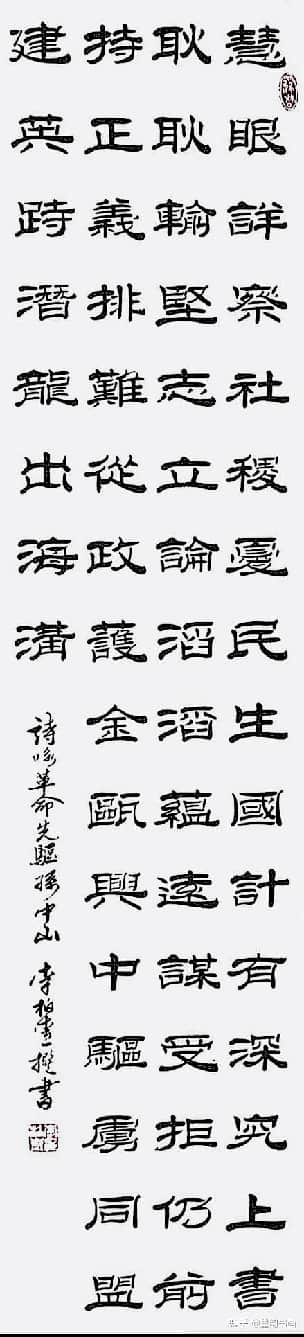 慧眼詳察社稷憂民生國計有深究上書
耿耿輸堅志立論滔滔蘊遠謀受拒仍前
持正義排難從政護金甌興中驅虜同盟
建英跱潛龍出海溝
詩咏革命先驅孫中山 李柏撰書
知乎